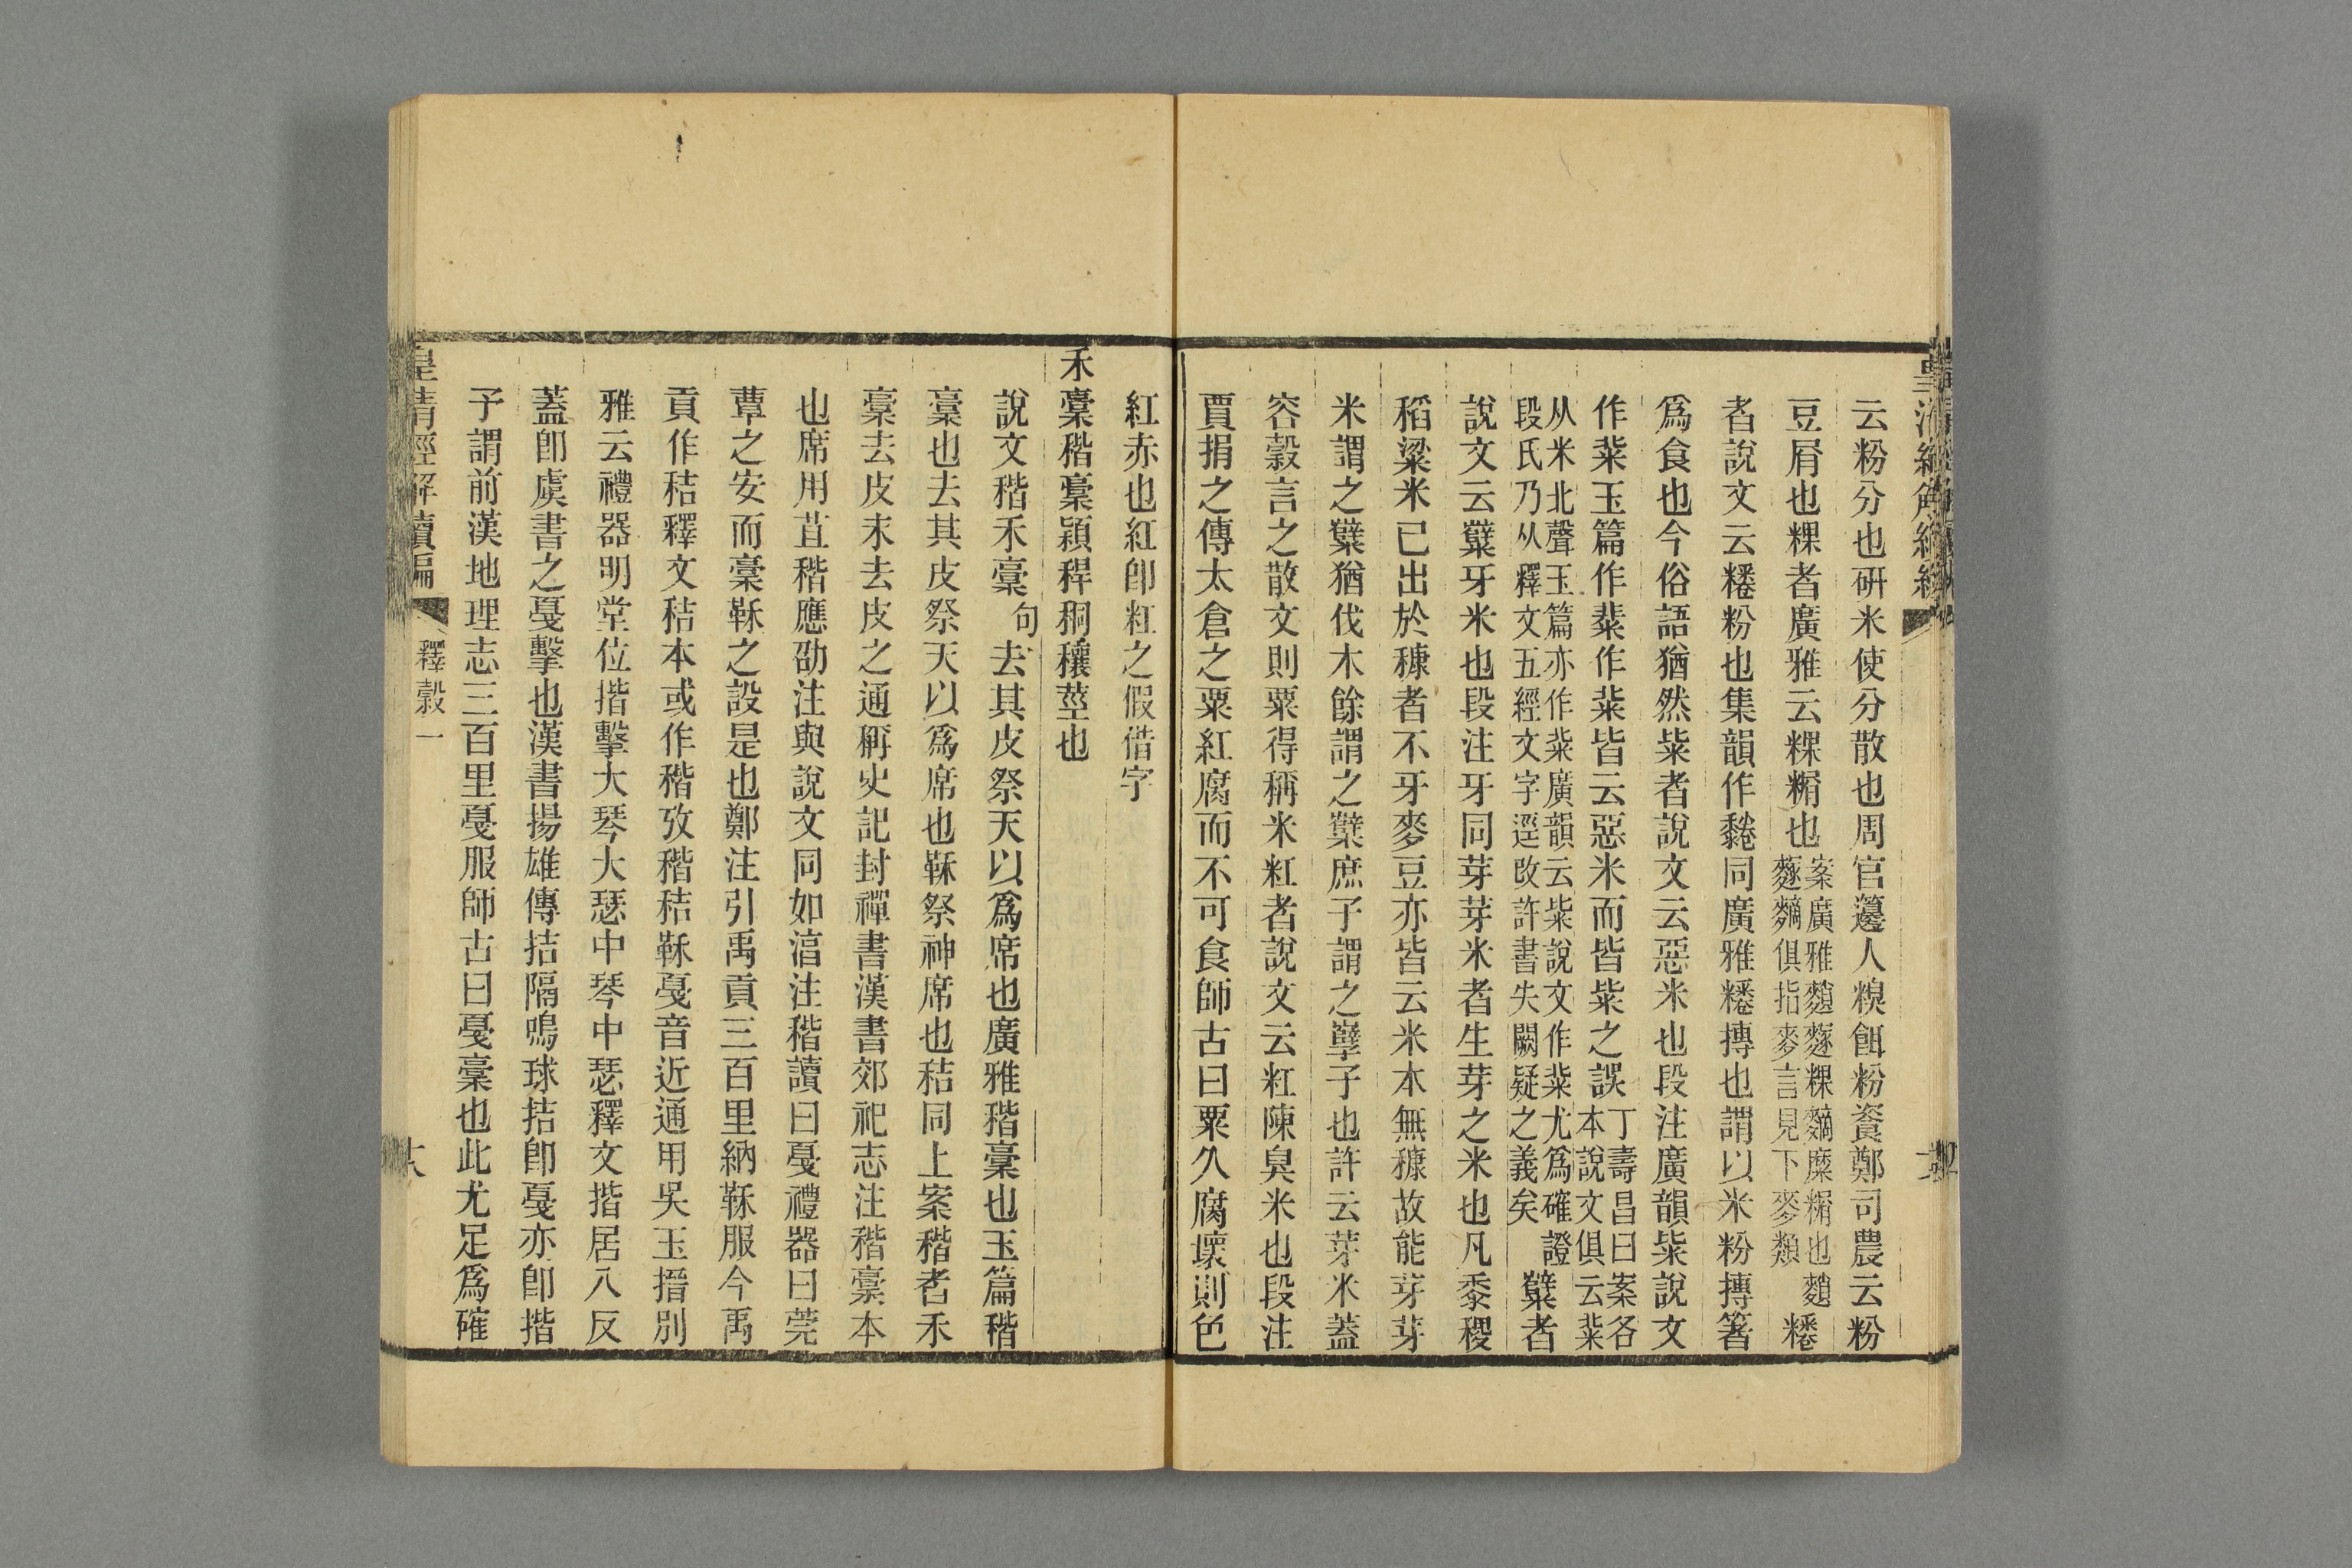 云粉分也研米使分散也周官籩人糗餌粉餈鄭司農云粉
豆屑也粿者廣雅云粿糏也案廣雅䴬䴭粿䴫糜糏也䴬䴭䴫俱指麥言見下麥類糕
者說文云粉也集韻作同廣雅摶也謂以米粉摶箸
爲食也今俗語猶然粊者說文云惡米也段注廣韻粊說文
作䉾玉篇作䉾作䉾皆云惡米而皆粊之誤丁壽昌曰案各本說文俱云䉾
从米北聲玉篇亦作䉾廣韻云粊說文作䉾尤爲確證段氏乃从釋文五經文字逕改許書失闕疑之義矣糱者
說文云糱牙米也段注牙同芽芽米者生芽之米也凡黍稷
稻粱米已出於穅者不牙麥豆亦皆云米本無穅故能芽芽
米謂之糱猶伐木餘謂之櫱庶子謂之孼子也許云芽米蓋
容穀言之散文則粟得稱米粠者說文云粠陳臭米也段注
賈捐之傳太倉之粟紅腐而不可食師古曰粟久腐壞則色
紅赤也紅卽粠之假借字
禾稾稭稾穎稈秱穰莖也
說文稭禾稾句去其皮祭天以爲席也廣雅稭稾也玉篇稭
稾也去其皮祭天以爲席也䅥祭神席也秸同上案稭者禾
稾去皮末去皮之通稱史記封禪書漢書郊祀志注稭稾本
也席用苴稭應劭注與說文同如湻注稭讀曰戞禮器曰莞
蕈之安而稾䅥之設是也鄭注引禹貢三百里納䅥服今禹
貢作秸釋文秸本或作稭攷稭秸䅥戞音近通用吳玉搢別
雅云禮器明堂位揩擊大琴大瑟中琴中瑟釋文揩居八反
蓋卽虞書之戞擊也漢書揚雄傳拮隔鳴球拮卽戞亦卽揩
予謂前漢地理志三百里戞服師古曰戞稾也此尤足爲確
皇清經解續編
釋穀一
六